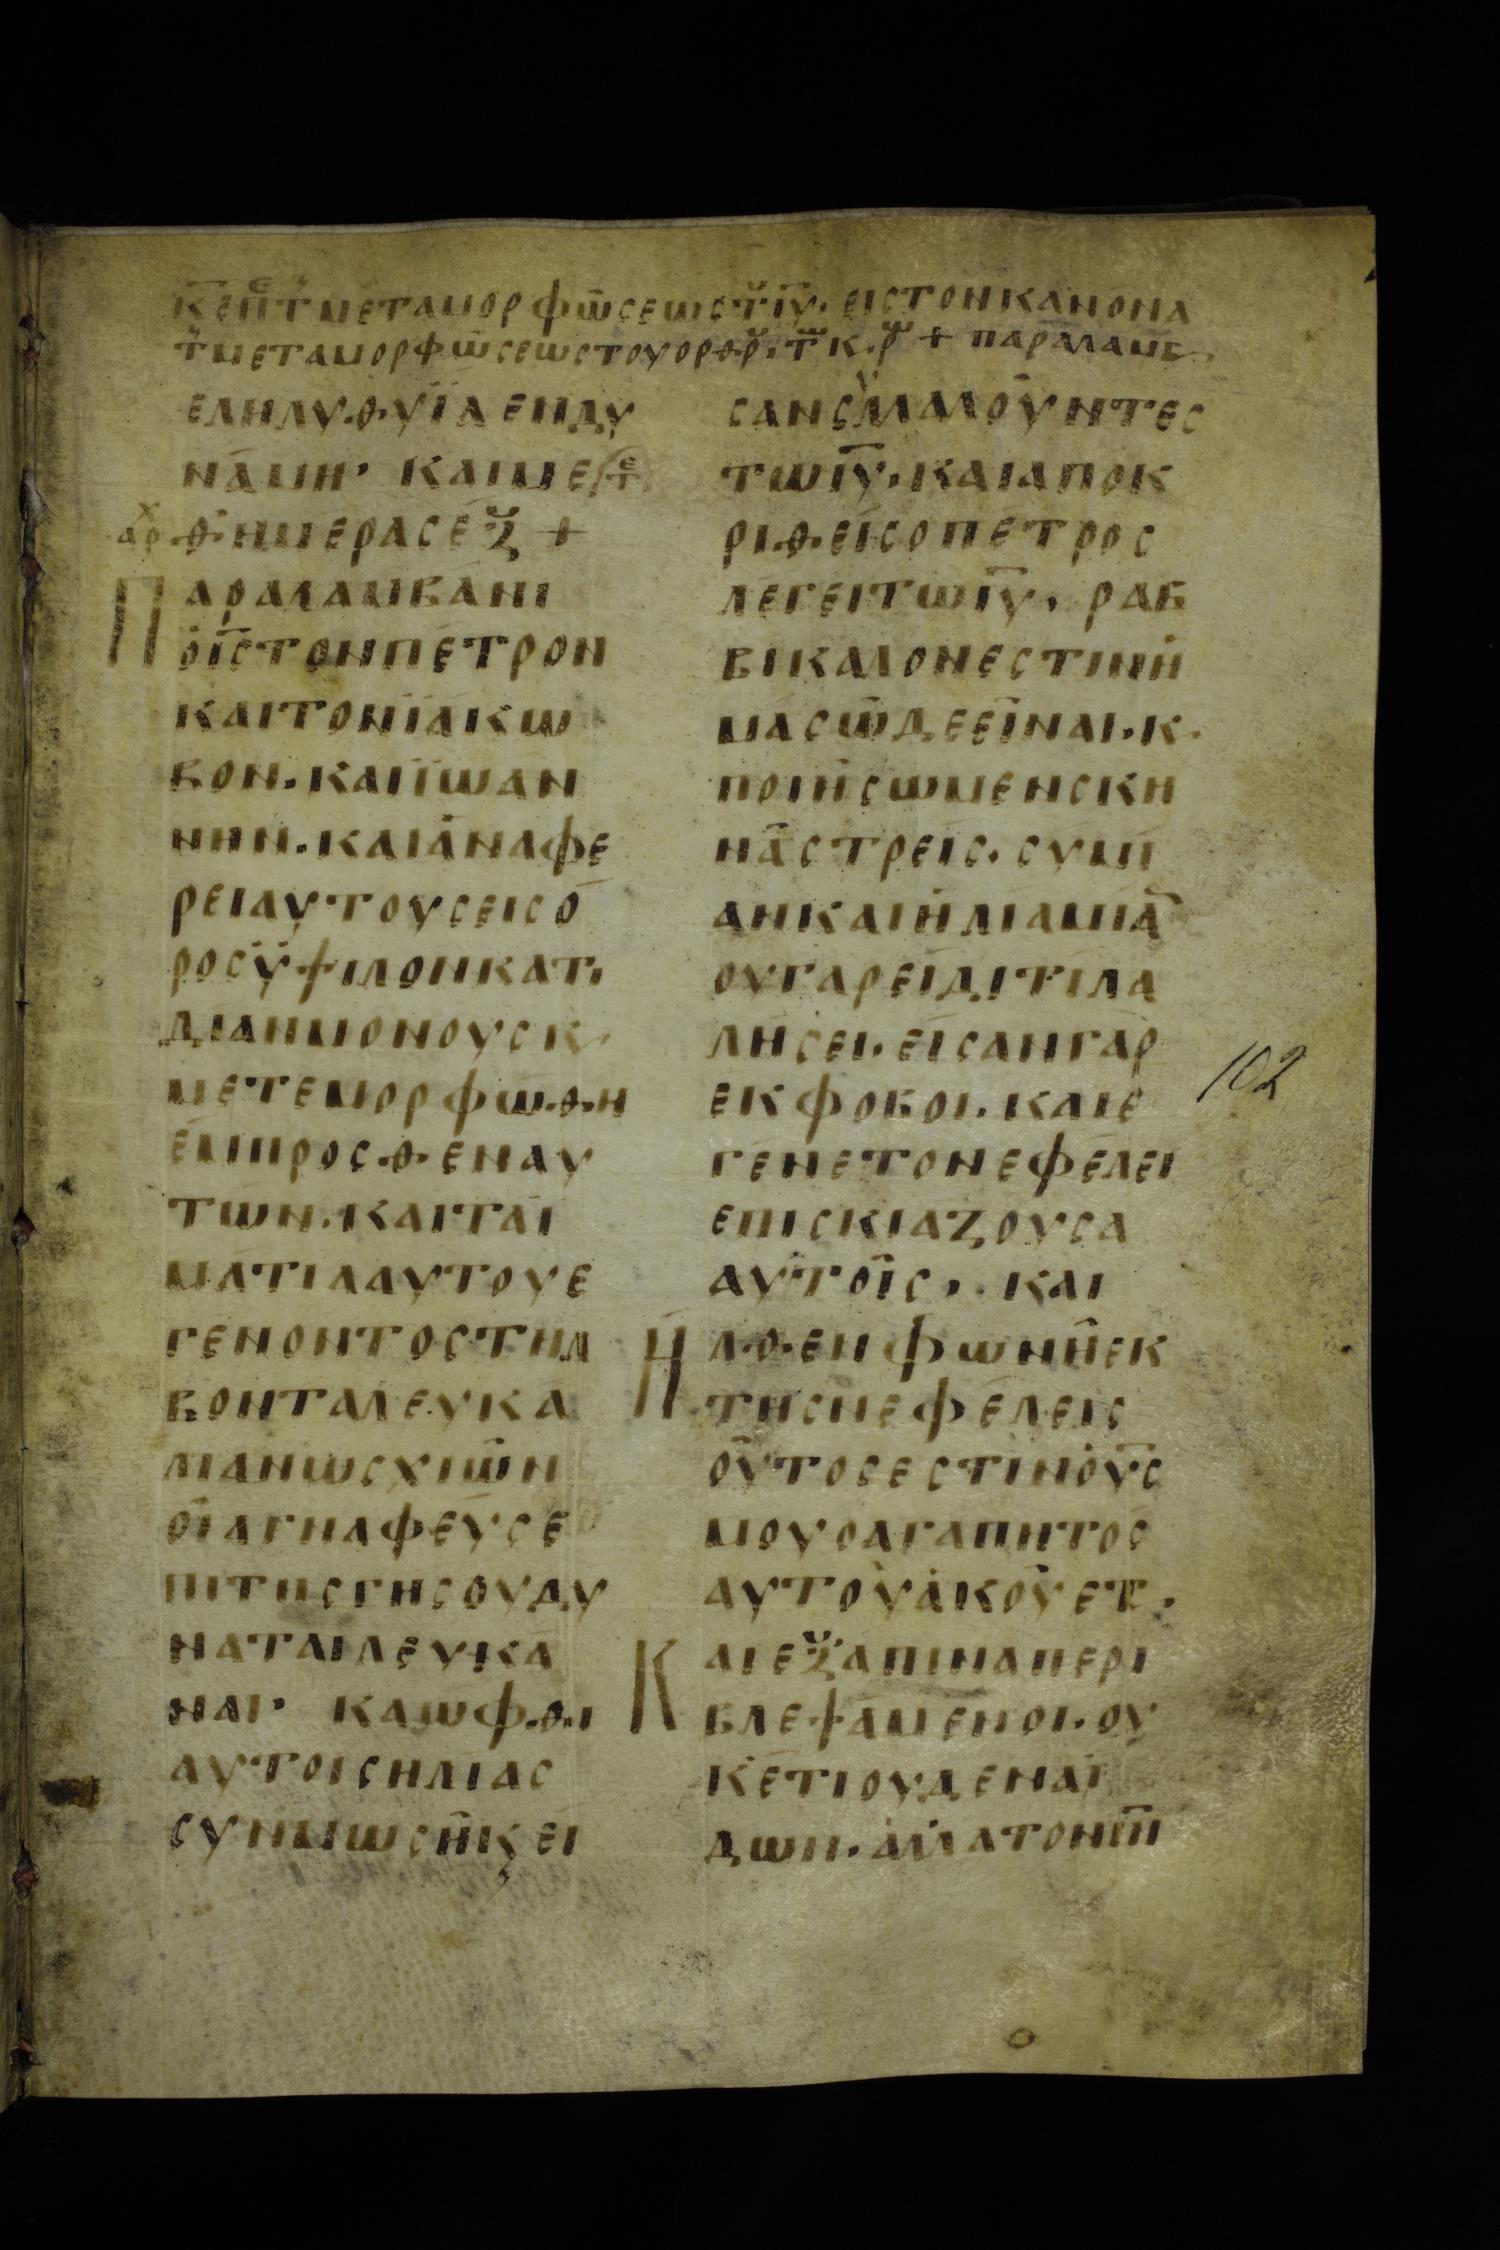 κε π τ μεταμορφωσεως τ ιυ. εις τον κανονα
τ μεταμορφωσεως του ορθρ. τ κ. ρ + παραλαμβ
εληλυθυϊα εν δυ
ναμη. και με τ
αρχ
θ ημερας εξ +
Παραλαμβανι
ο ις τον πετρον
και τον ϊακω
βον. και ϊωαν
νην. και αναφε
ρει αυτους εις ο
ρος ϋψιλον κατ.
διαν μονους κ.
μετεμορφωθη
εμπροσθεν αυ
των. και τα ι
ματια αυτου ε
γενοντο στηλ
βοντα λευκα
λιαν ως χιων
οια γναφευς ε
πι της γης ου δυ
ναται λευκα
ναι. και ωφθι
αυτοις ηλιας
συν μωση κ, ει
σαν συλλαλουντες
τω ιυ. και αποκ
ριθεις ο πετρος
λεγει τω ιυ. ραβ
βι καλον εστιν η
μας ωδε ειναι. κ.
ποιησωμεν σκη
νας τρεις. συ μι
αν και ηλια μια
ου γαρ ειδι τι λα
λησει. εισαν γαρ
εκφοβοι. και ε
γενετο νεφελει
επισκιαζουσα
αυτοις. και
Ηλθεν φωνη εκ
της νεφελεις
ουτος εστιν ο υς
μου ο αγαπητος
αυτου ακουετ.
Και εξαπινα περι
βλεψαμενοι. ου
κετι ουδενα ι
δων. αλλα τον ιν
102